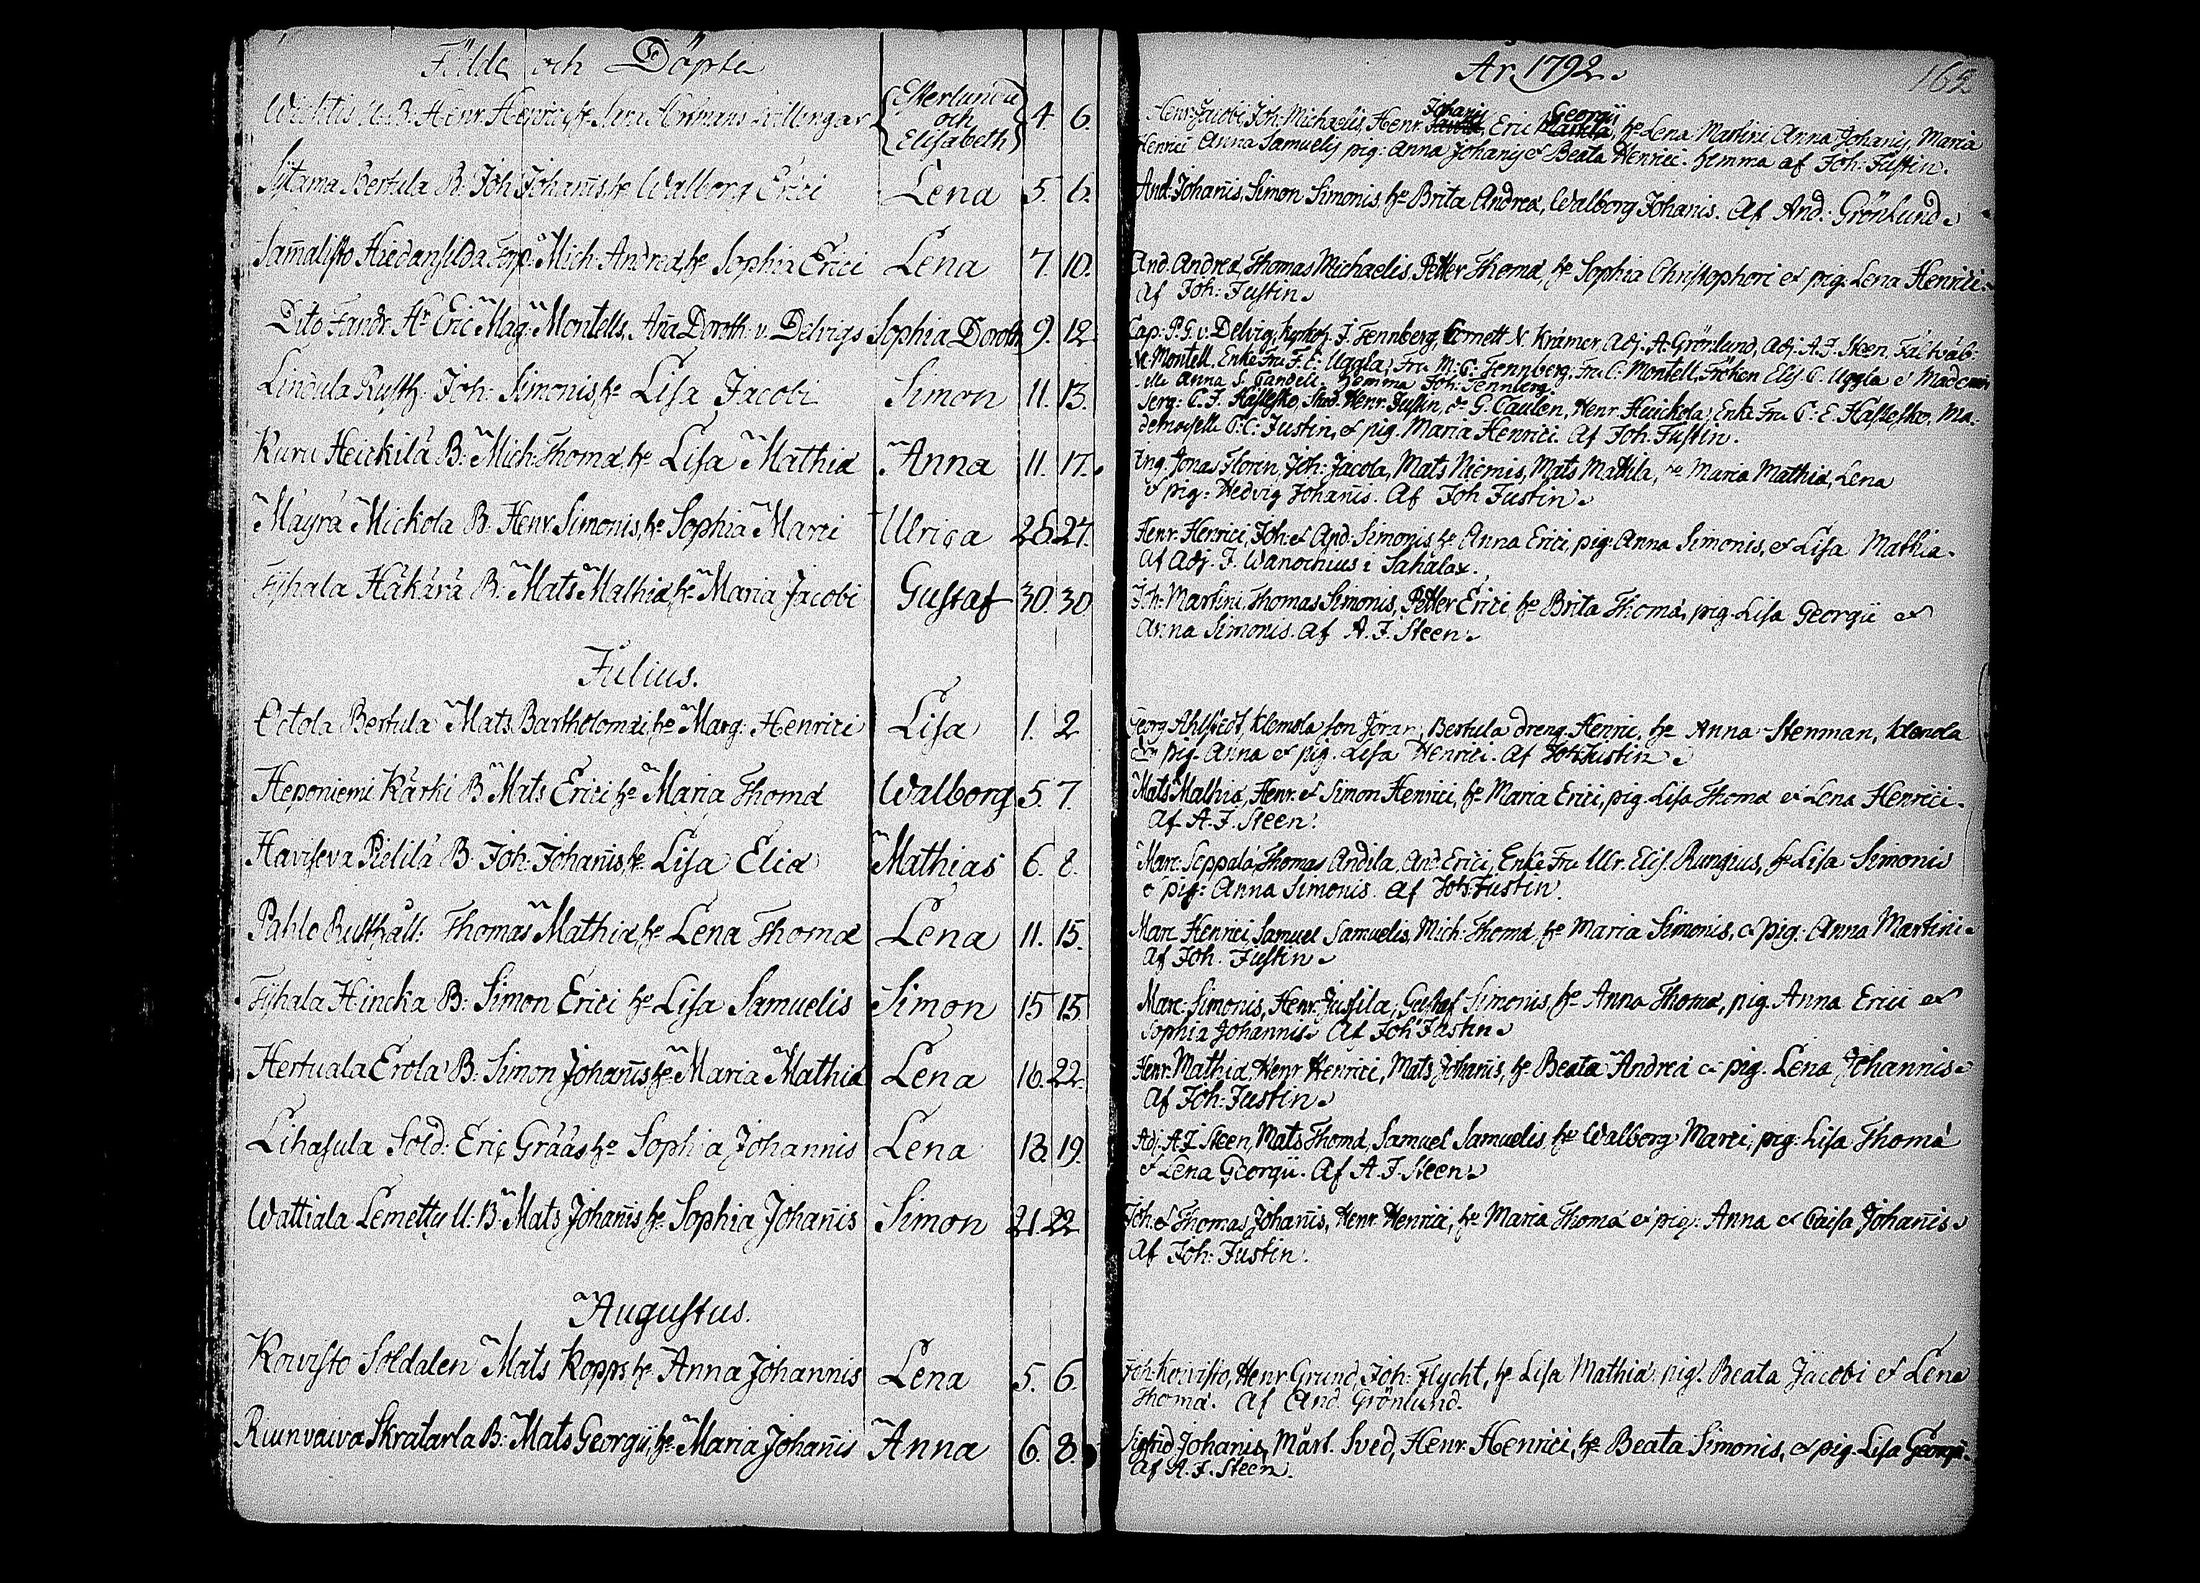 Födde och Döpte
B. Henr. Henrici, h: Sara Hermans tvillingar {Esterlunda och Elisabeth} 4. 6.
Sÿtama Bertula B. Joh: Johañis h: Walborg Erici Lena 5. 6.
Sam̃alisto Hiedansilda Torp: Mich: Andreæ, h: Sophia Erici Lena 7. 10.
Dito Fändr. Hr Eric Mag: Montells, Añа Doroth: v. Delvigs Sophia Doroth 9. 12
Lindula Rusth: Joh: Simonis, h: Lisa Jacobi Simon 11. 13.
Kuru Heickilä B: Mich: Thomæ, h: Lisa Mathiæ Anna 11. 17.
Mäyrä Mickola B. Henr. Simonis, h: Sophia Marci Ulrica 26. 27.
Häkärä B: Mats Mathiæ, h: Maria Jacobi Gustaf 30. 30
Julius.
Bertula Mats Bartholomæi, h: Marg: Henrici Lisa 1. 2
Heponiemi Kärki B Mats Erici h: Maria Thomæ Walborg 5. 7.
Haviseva Pielilä B. Joh: Johañis, h: Lisa Eliæ Mathias 6. 8.
Pahlo Rusthåll: Thomas Mathiæ, h: Lena Thomæ Lena 11. 15.
Hincka B: Simon Erici h: Lisa Samuelis Simon 15 15
Hertuala Erola B: Simon Johañis, h: Maria Mathiæ Lena 16. 22.
Lihasula Sold: Eric Grååss h: Sophia Johannis Lena 18. 19.
Wattiala Lemetty U. B: Mats Johañis, h: Sophia Johañis Simon 21. 22
Augustus.
Kowisto Soldaten Mats Kopps h: Anna Johannis Lena 5. 6.
Riunvaiva Skratarla B: Mats Georgii, h: Maria Johañis Anna 6. 8.
År 1792.
162
Johanis Georgii
Henr: Jacobi, Joh: Michaelis, Henr. Eric h: Lena Martini, Anna Johanis, Maria
Henrici Anna Samuelis pig: Anna Johanis & Beata Henrici. hemma af Joh: Justin.
And: Johañis, Simon Simonis, h: Brita Andreæ, Walborg Johanis. Af And: Grönlund.
And. Andreæ, Thomas Michaelis, Petter Thomæ, h: Sophia Christophori & pig. Lena Henrici.
Af Joh: Justin.
Cap: P. G. v. Delvig, J. Tennberg, Cornett N. Krämer, Adj. A. Grönlund, Adj. A. J. Steen, Fältväb:
N. Montell, Enke Fru F. E: Uggla; Fru M: C: Tennberg, Fru C: Montell, Fröken Elis. C. Uggla & Mademoi
elle Anna S. hemma Joh: Tennberg
Serg: C. J. Henr. Justin, G. Caulen, Henr. Heickola, Enke Fru C: E. Ma
demoiselle C: C: Justin, & pig. Maria Henrici. Af Joh: Justin.
Jonas Floren, Joh: Jacola, Mats Niemis, Mats Mattila, h: Maria Mathiæ, Lena
& pig: Hedvig Johañis. Af Joh Justin.
Henr. Henrici, Joh: & And: Simonis h: Anna Erici, pig. Anna Simonis, & Lisa Mathiæ.
Af Adj. J. Wanochius i Sahalax.
Joh: Martini, Thomas Simonis, Petter Erici, h: Brita Thomæ, pig. Lisa Georgii &
Anna Simonis. af A. J. Steen.
Georg Ahlstedt, Klemola son Jöran, Bertula dreng Henric, h: Anna Stenman, Klemola
pig. Anna & pig. Lisa Henrici. Af Joh: Justin.
Mats Mathiæ, Henr. & Simon Henrici, h: Maria Erici, pig. Lisa Thomæ & Lena Henrici.
Af A. J. Steen.
Marc: Seppälä, Thomas Andila, And Erici, Enke Fru Ulr. Elis. Rungius, h: Lisa Simonis
& pig: Anna Simonis. Af Joh: Justin.
Marc Henrici, Samuel Samuelis, Mich: Thomæ, h: Maria Simonis, & pig: Anna Martini.
Af Joh. Justin.
Marc: Simonis, Henr. Jussila, Gustaf Simonis, h: Anna Thomæ, pig. Anna Erici &
Sophia Johannis. Af Joh: Justin.
Henr. Mathiæ, Henr Henrici, Mats Johañis, h: Beata Andreæ & pig. Lena Johannis.
Af Joh: Justin.
Adj. A. J. Steen, Mats Thomæ, Samuel Samuelis, h: Walborg Marci, pig: Lisa Thomæ
& Lena Georgii. Af A. J. Steen.
Joh: & Thomas Johañis, Henr. Henrici, h: Maria Thomæ & pig: Anna & Caisa Johañis.
Af Joh: Justin.
Joh: Kowisto, Henr. Grund, Joh: Flycht, h: Lisa Mathiæ, pig. Beata Jacobi & Lena
Thomæ. Af And. Grönlund.
Sigfrid Johanis, Mårt. Sved, Henr. Henrici, h: Beata Simonis, & pig. Lisa Georgii.
Af A. J. Steen.